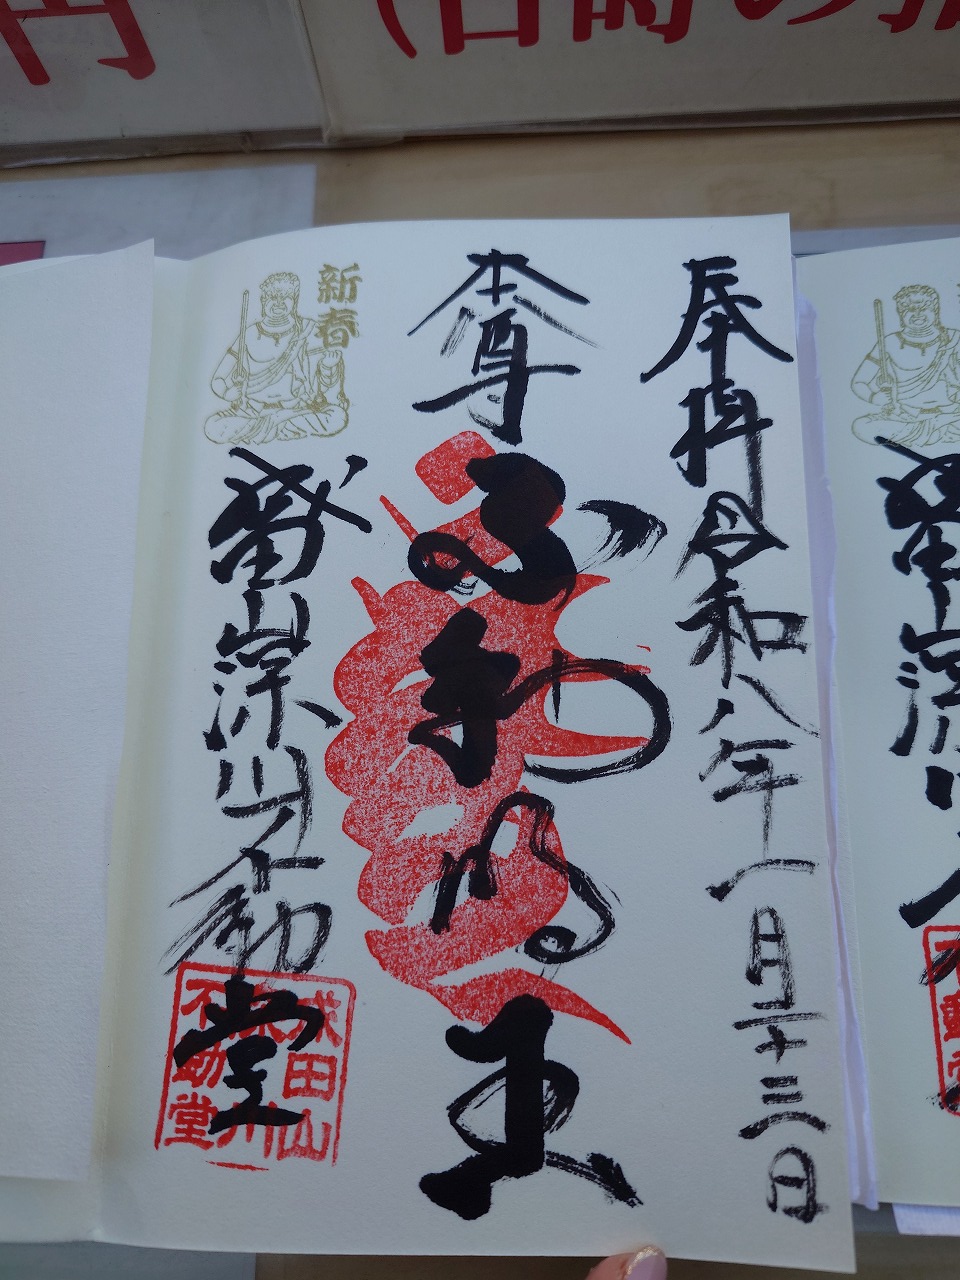 円
(日時の指
奉拝 令和八年一月二十三日
本尊 不動明王
新春
成田山深川不動堂
成田山
深川
不動堂